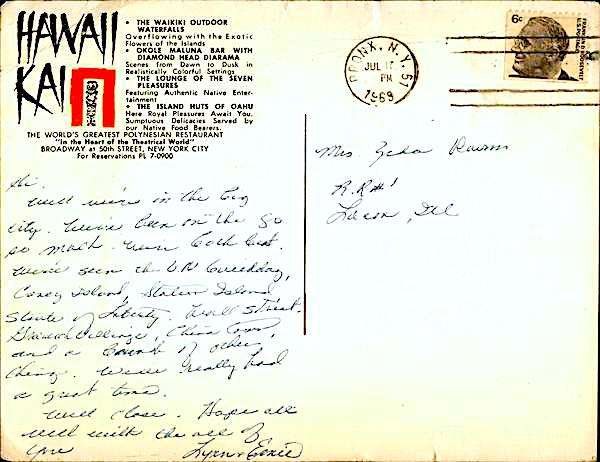 HAWAII
KAI
• THE WAIKIKI OUTDOOR
WATERFALLS
Overflowing with the Exotic
Flowers of the Islands
• OKOLE MALUNA BAR WITH
DIAMOND HEAD DIARAMA
Scenes from Dawn to Dusk in
Realistically Colorful Settings
• THE LOUNGE OF THE SEVEN
PLEASURES
Featuring Authentic Native Enter-
tainment
• THE ISLAND HUTS OF OAHU
Here Royal Pleasures Await You.
Sumptuous Delicacies Served by
our Native Food Bearers.
THE WORLD'S GREATEST POLYNESIAN RESTAURANT
"In the Heart of the Theatrical World"
BROADWAY at 50th STREET, NEW YORK CITY
For Reservations PL 7-0900
BRONX, N.Y. 51
JUL 17
PM
1969
6c
FRANKLIN D. ROOSEVELT
U.S. POSTAGE
Mrs.
R.R #1
Lacon, Ill
Hi.
Well we're in the big
city. We've been on the go
so much. Were
We've seen the U.N
Coney Island, Staten Island
Statue of Liberty. Wall Street.
China Town,
and a bunch of other
things. We've really had
a great time.
Will close. Hope all
well with the all of
you
Lynn &